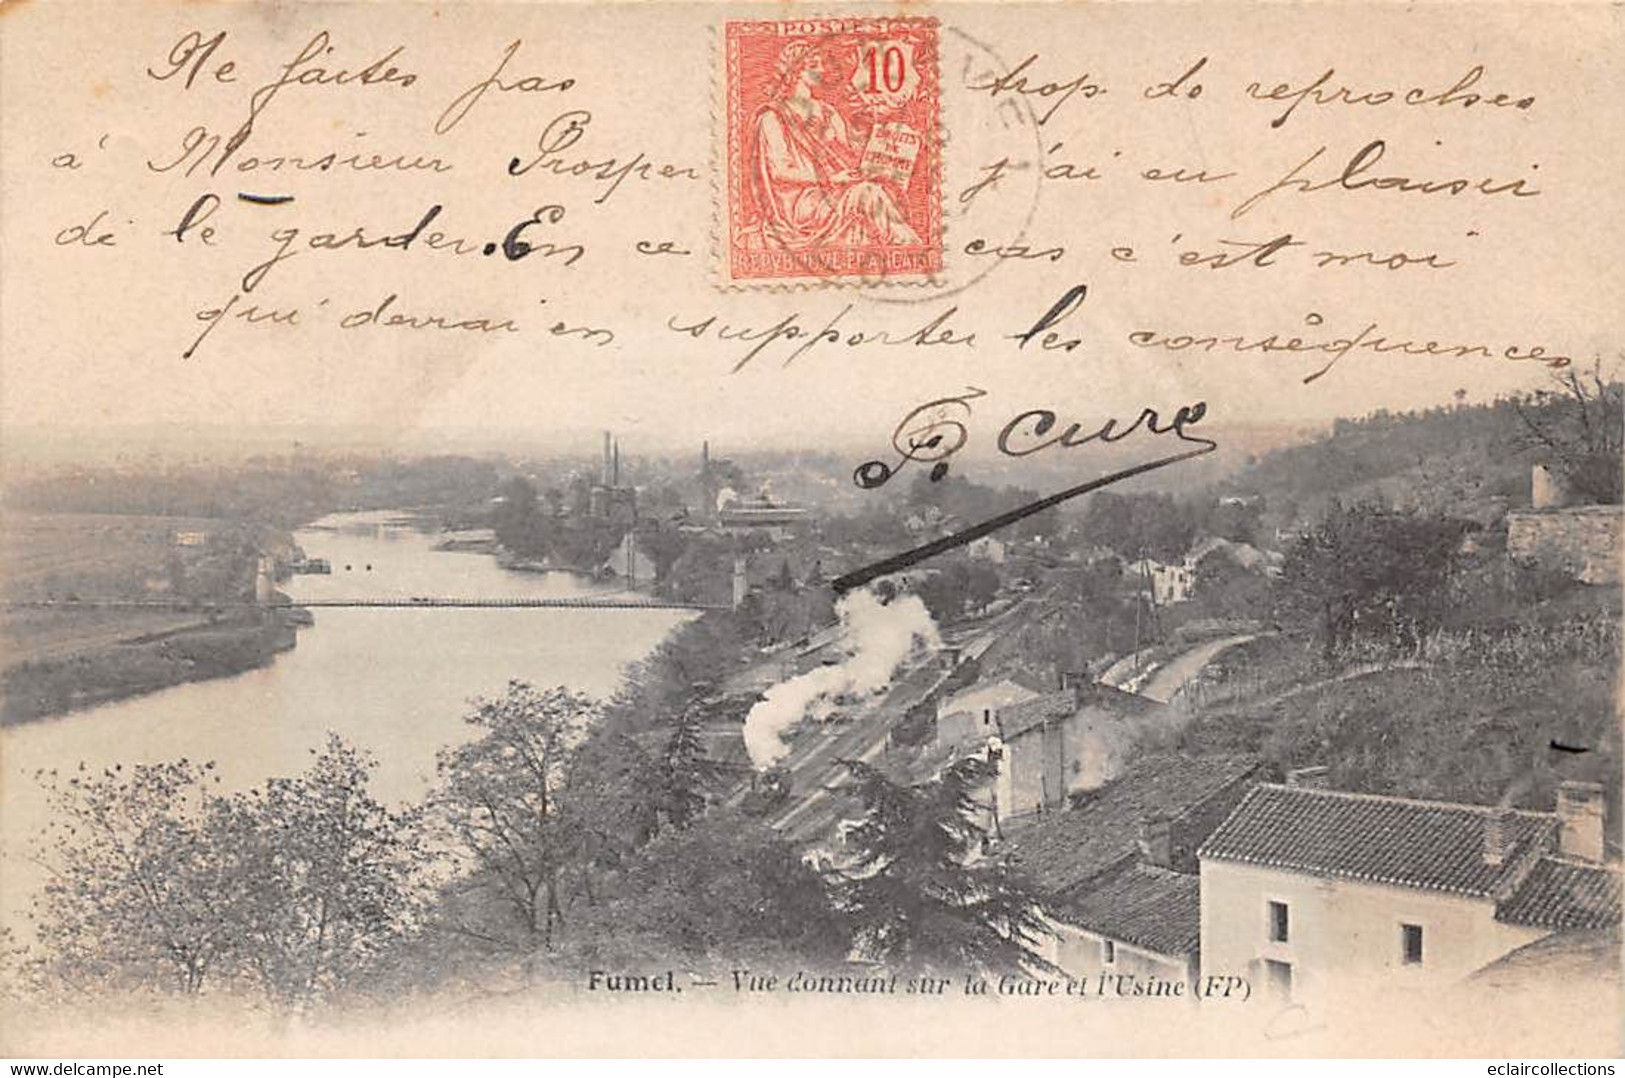 Ne faites pas trop de reproches
à Monsieur Prosper j'ai eu plaisir
de le garder. En ce cas c'est moi
qui devrai en supporter les conséquences
Cure
POSTES
10
DROITS DE L'HOMME
REPVBLIQVE FRANCAISE
Fumel. — Vue donnant sur la Gare et l'Usine (FP)
eclaircollections